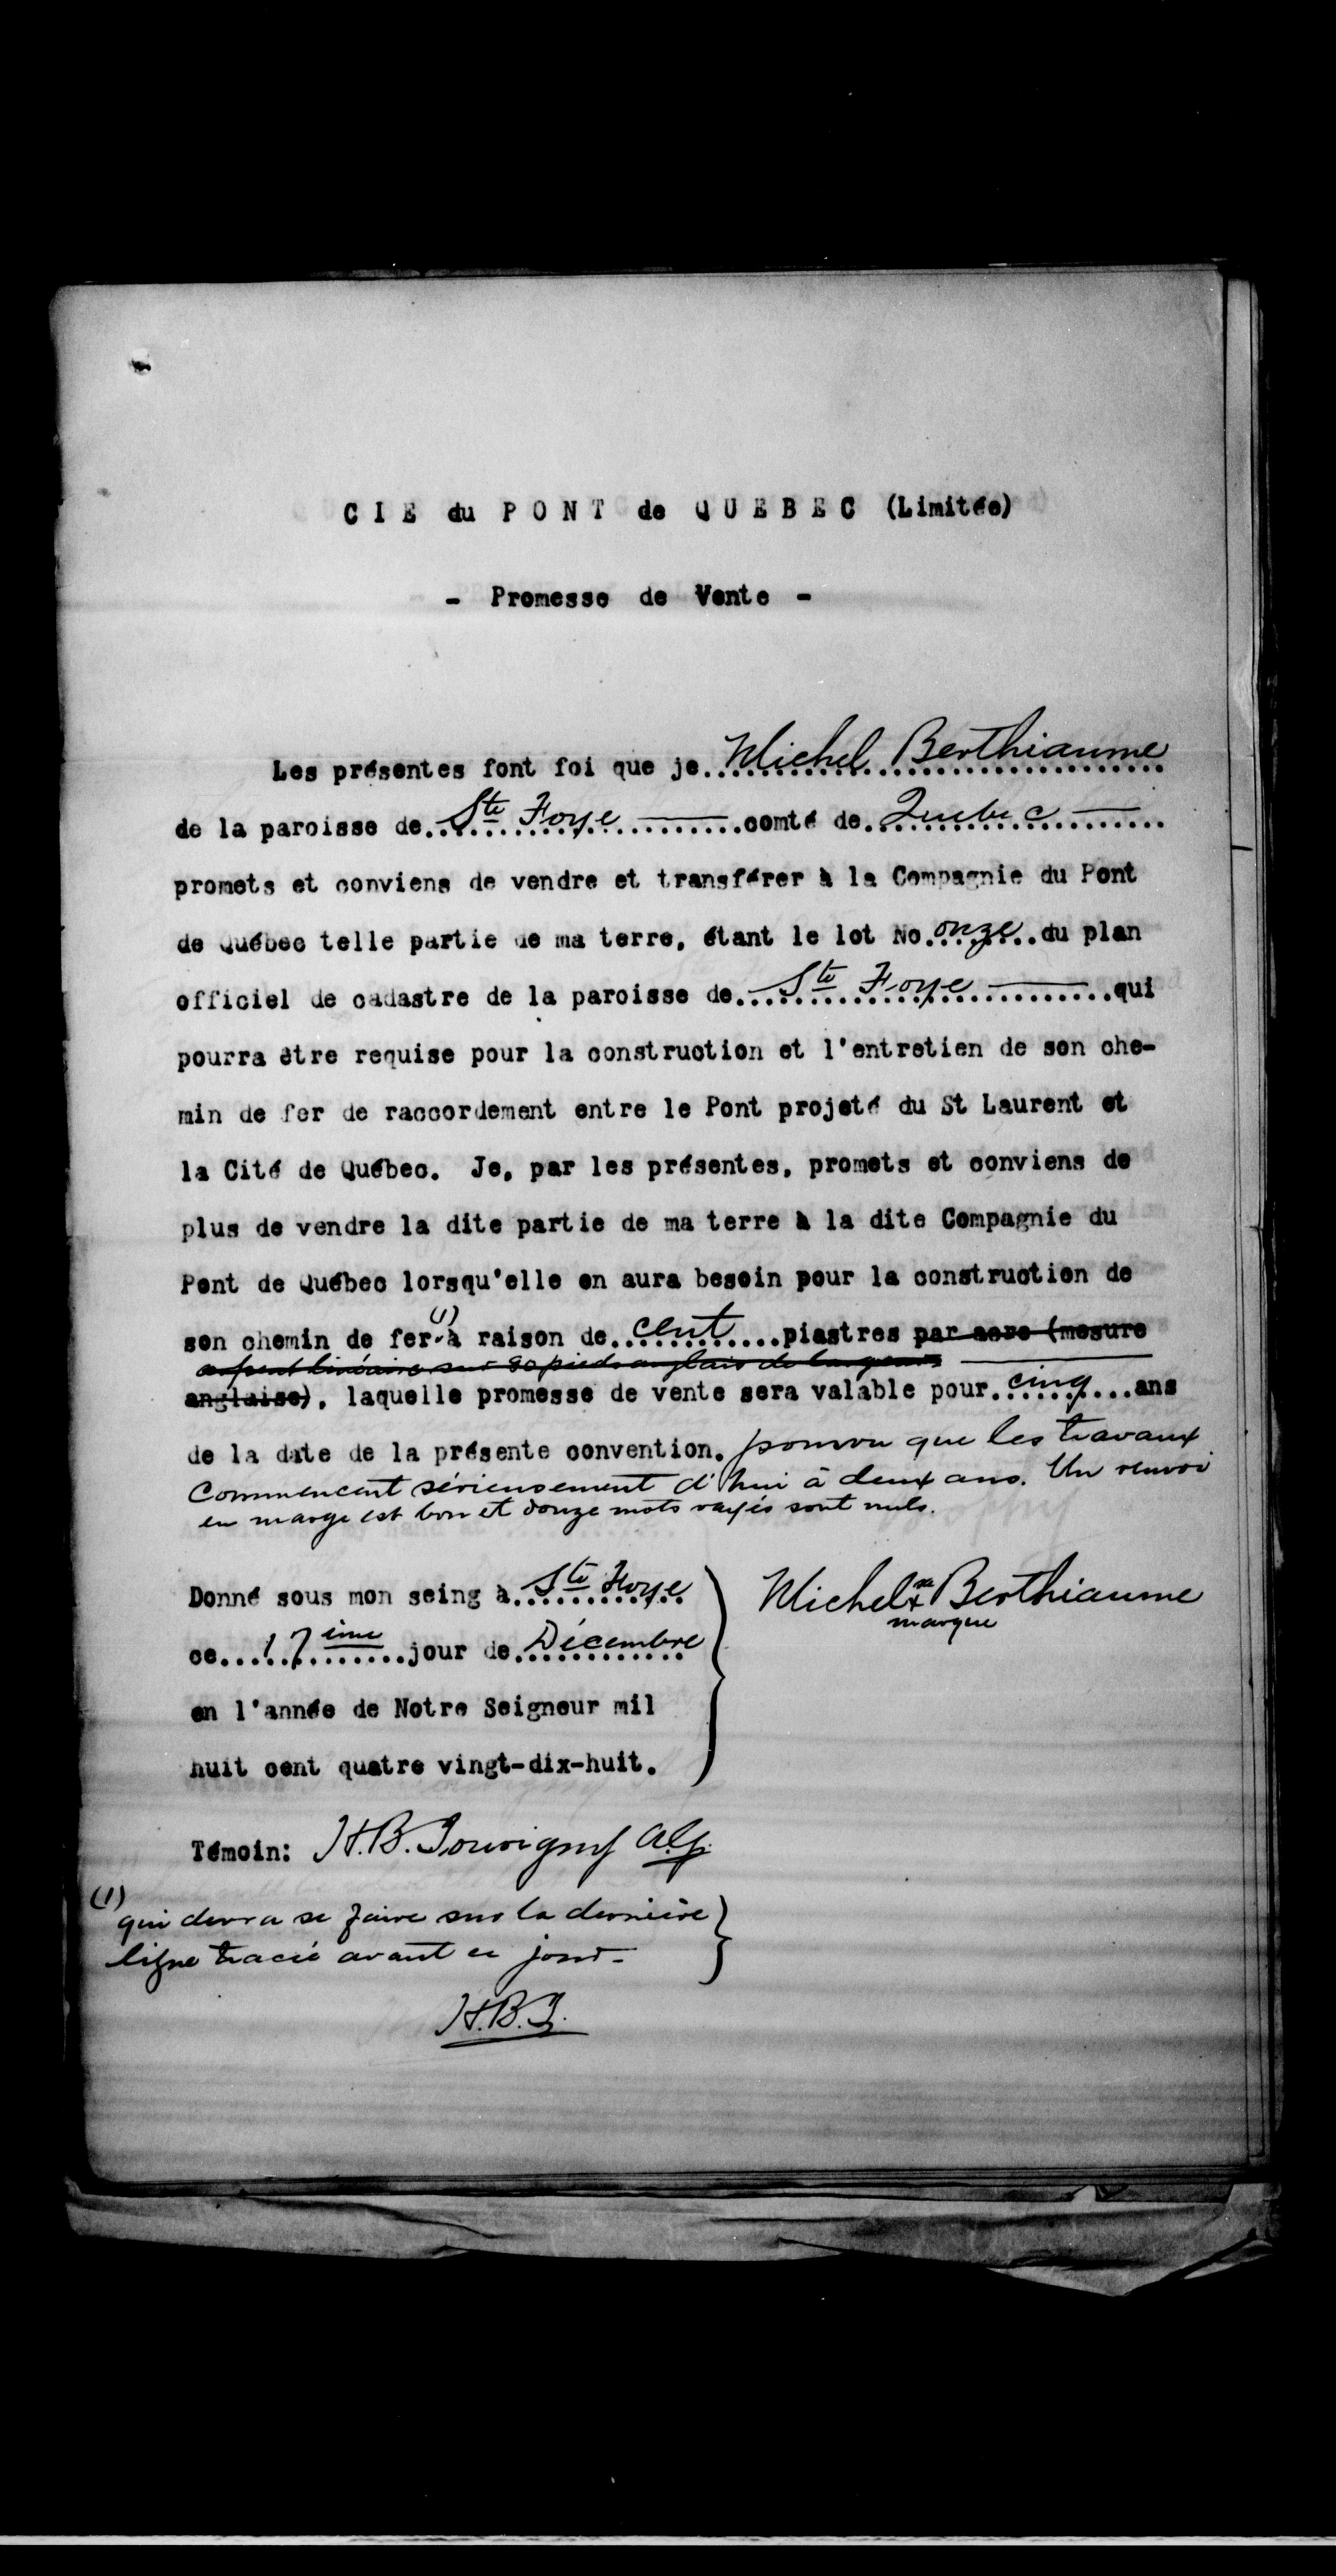 CIE du PONT de QUEBEC (Limitée)
- Promesse de Vente -
Les présentes font foi que je Michel Berthiaume
de la paroisse de Ste Foye comté de Quebec
promets et conviens de vendre et transférer à la Compagnie du Pont
de Québec telle partie de ma terre, étant le lot No. onze du plan
officiel de cadastre de la paroisse de Ste Foye qui
pourra être requise pour la construction et l'entretien de son che-
min de fer de raccordement entre le Pont projeté du St Laurent et
la Cité de Québec. Je, par les présentes, promets et conviens de
plus de vendre la dite partie de ma terre à la dite Compagnie du
Pont de Québec lorsqu'elle en aura besoin pour la construction de
son chemin de fer (1) à raison de cent piastres par acre (mesure
arpent linéaire sur 80 pieds anglais de largeur
anglaise), laquelle promesse de vente sera valable pour cinq ans
de la date de la présente convention. pourvu que les travaux
commencent sérieusement d'hui à deux ans. Un renvoi
en marge est bon et douze mots rayés sont nuls.
Donné sous mon seing à Ste Foye
ce 17ième jour de Décembre
en l'année de Notre Seigneur mil
huit cent quatre vingt-dix-huit.
Michel sa x Berthiaume
marque
Témoin: H.B.
(1)
qui devra se faire sur la dernière
ligne tracée avant ce jour-